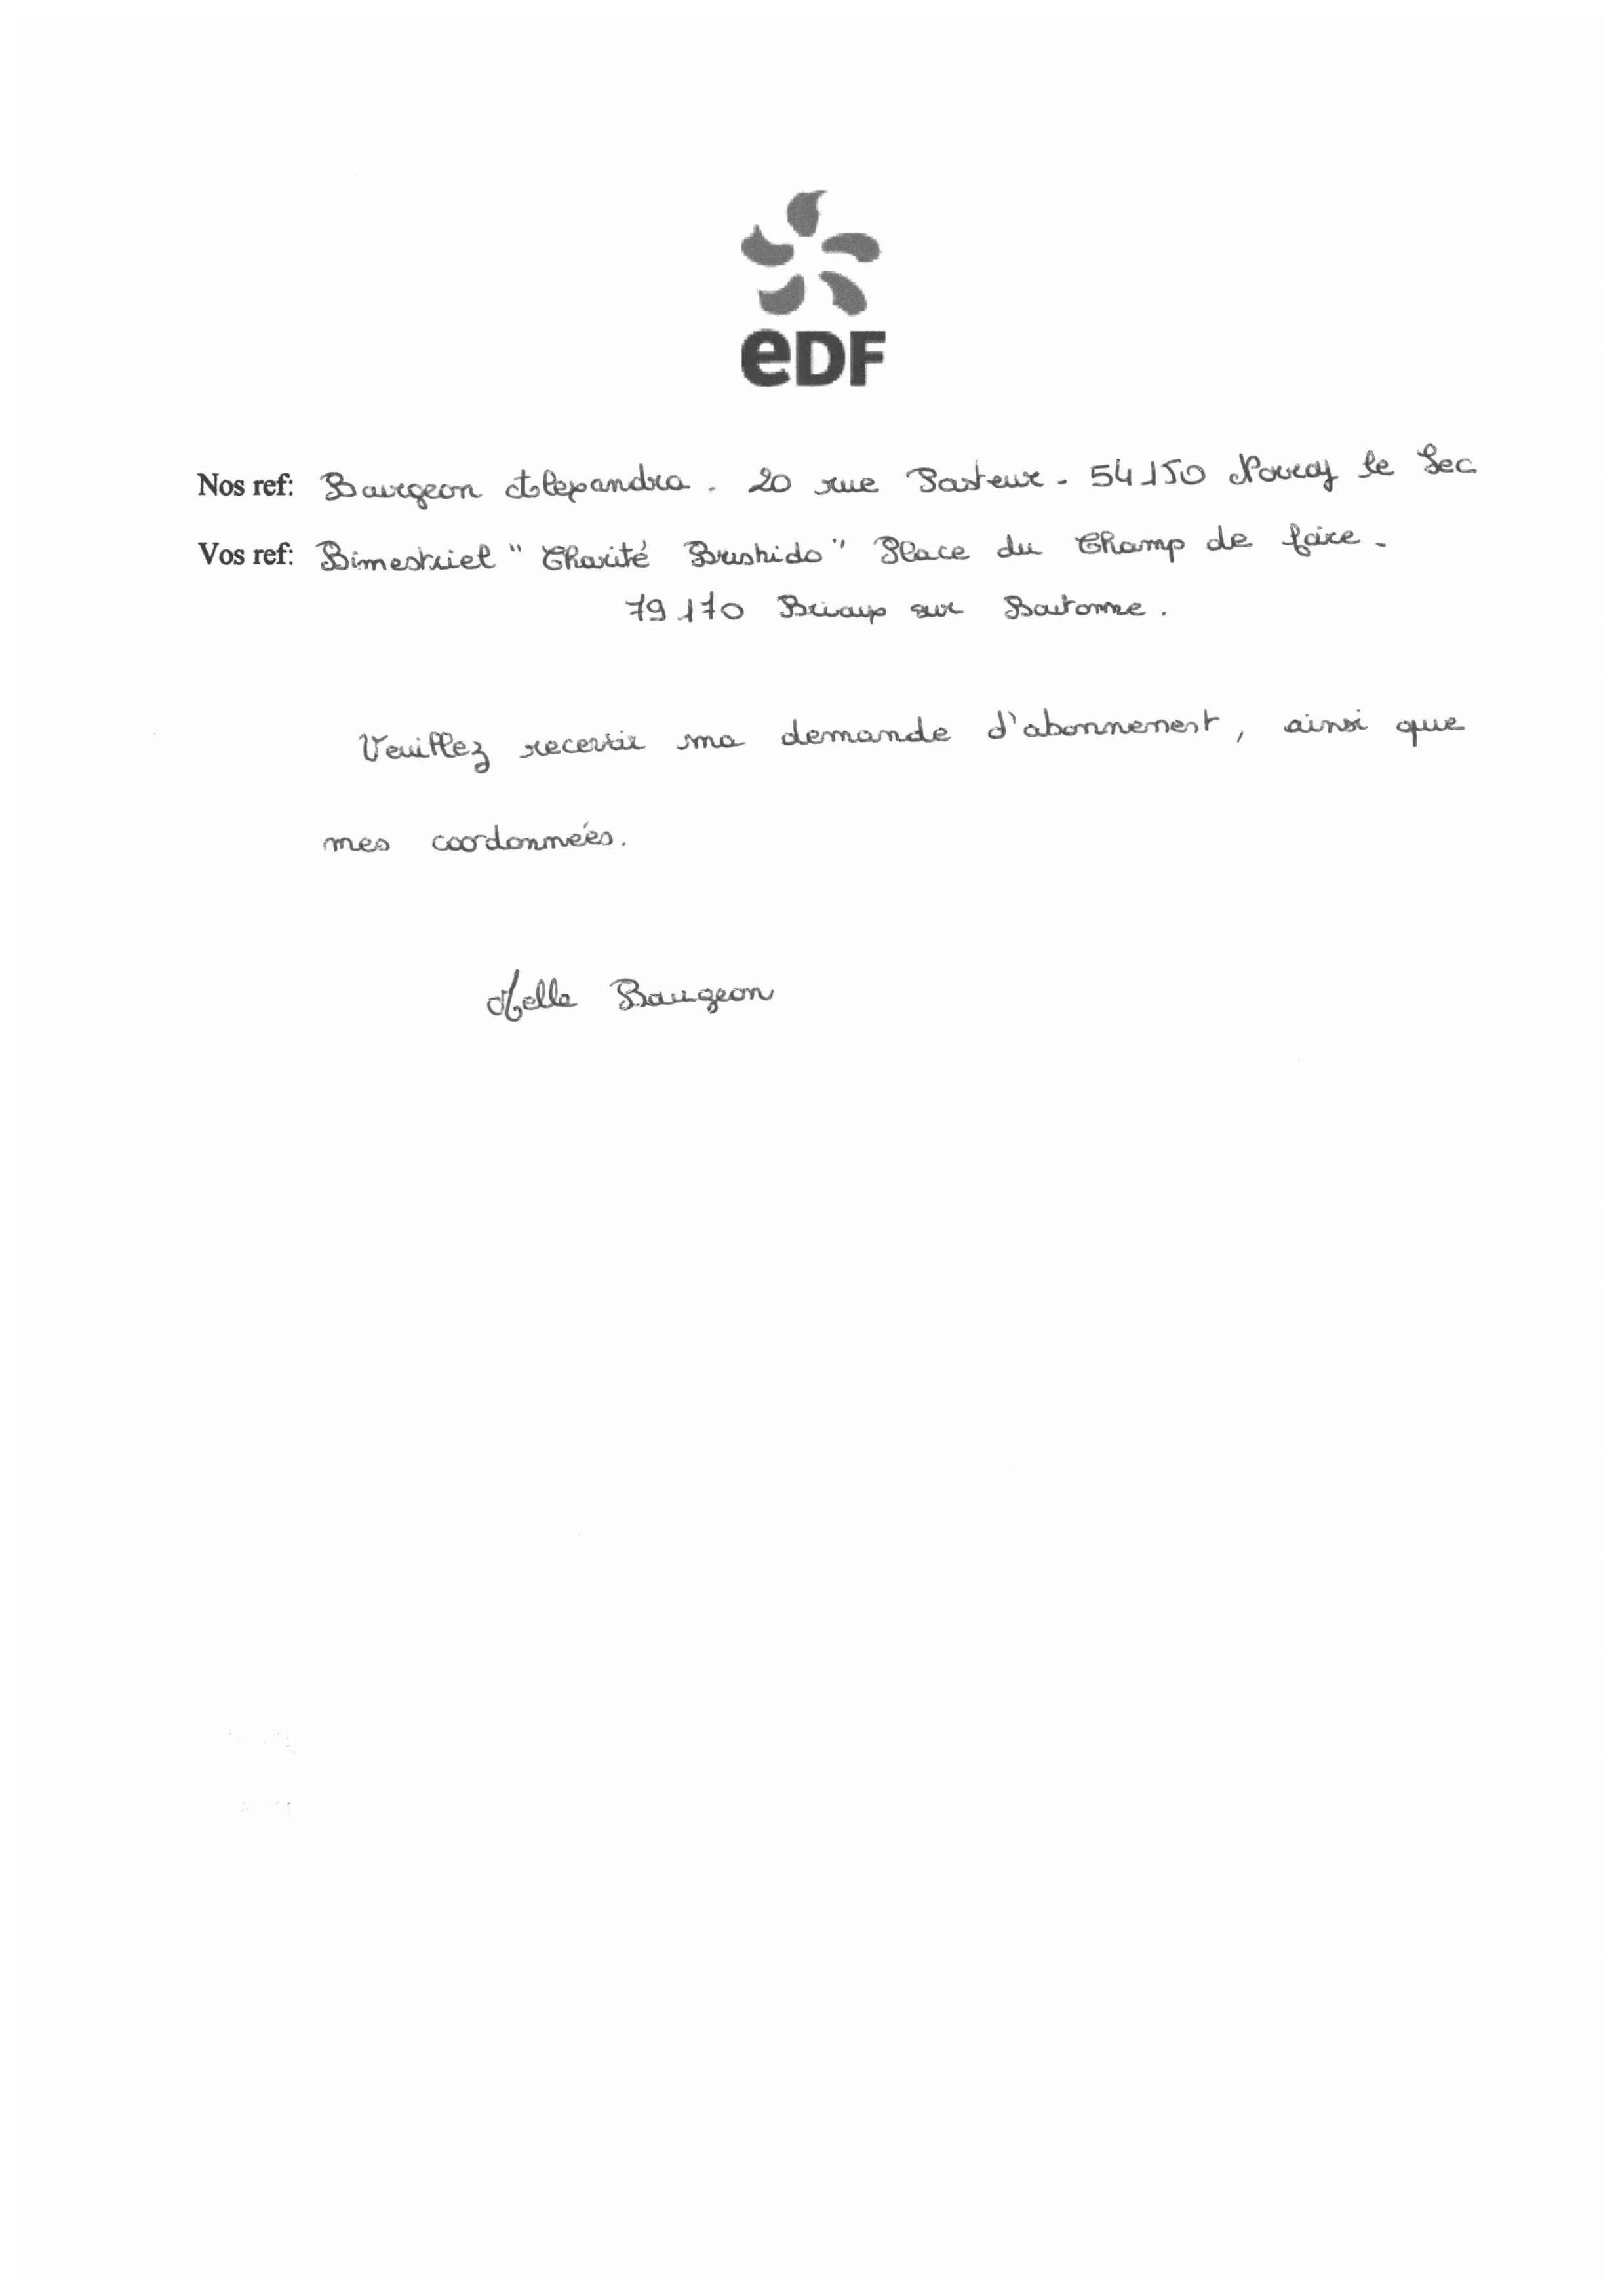 eDF
Nos ref: Bourgeon Alexandra. 20 rue Pasteur - 54150 Norroy le Sec
Vos ref: Bimestriel "Charité Bushido" Place du Champ de foire -
79170 Brioux sur Boutonne.
Veuillez recevoir ma demande d'abonnement, ainsi que
mes coordonnées.
Melle Bourgeon